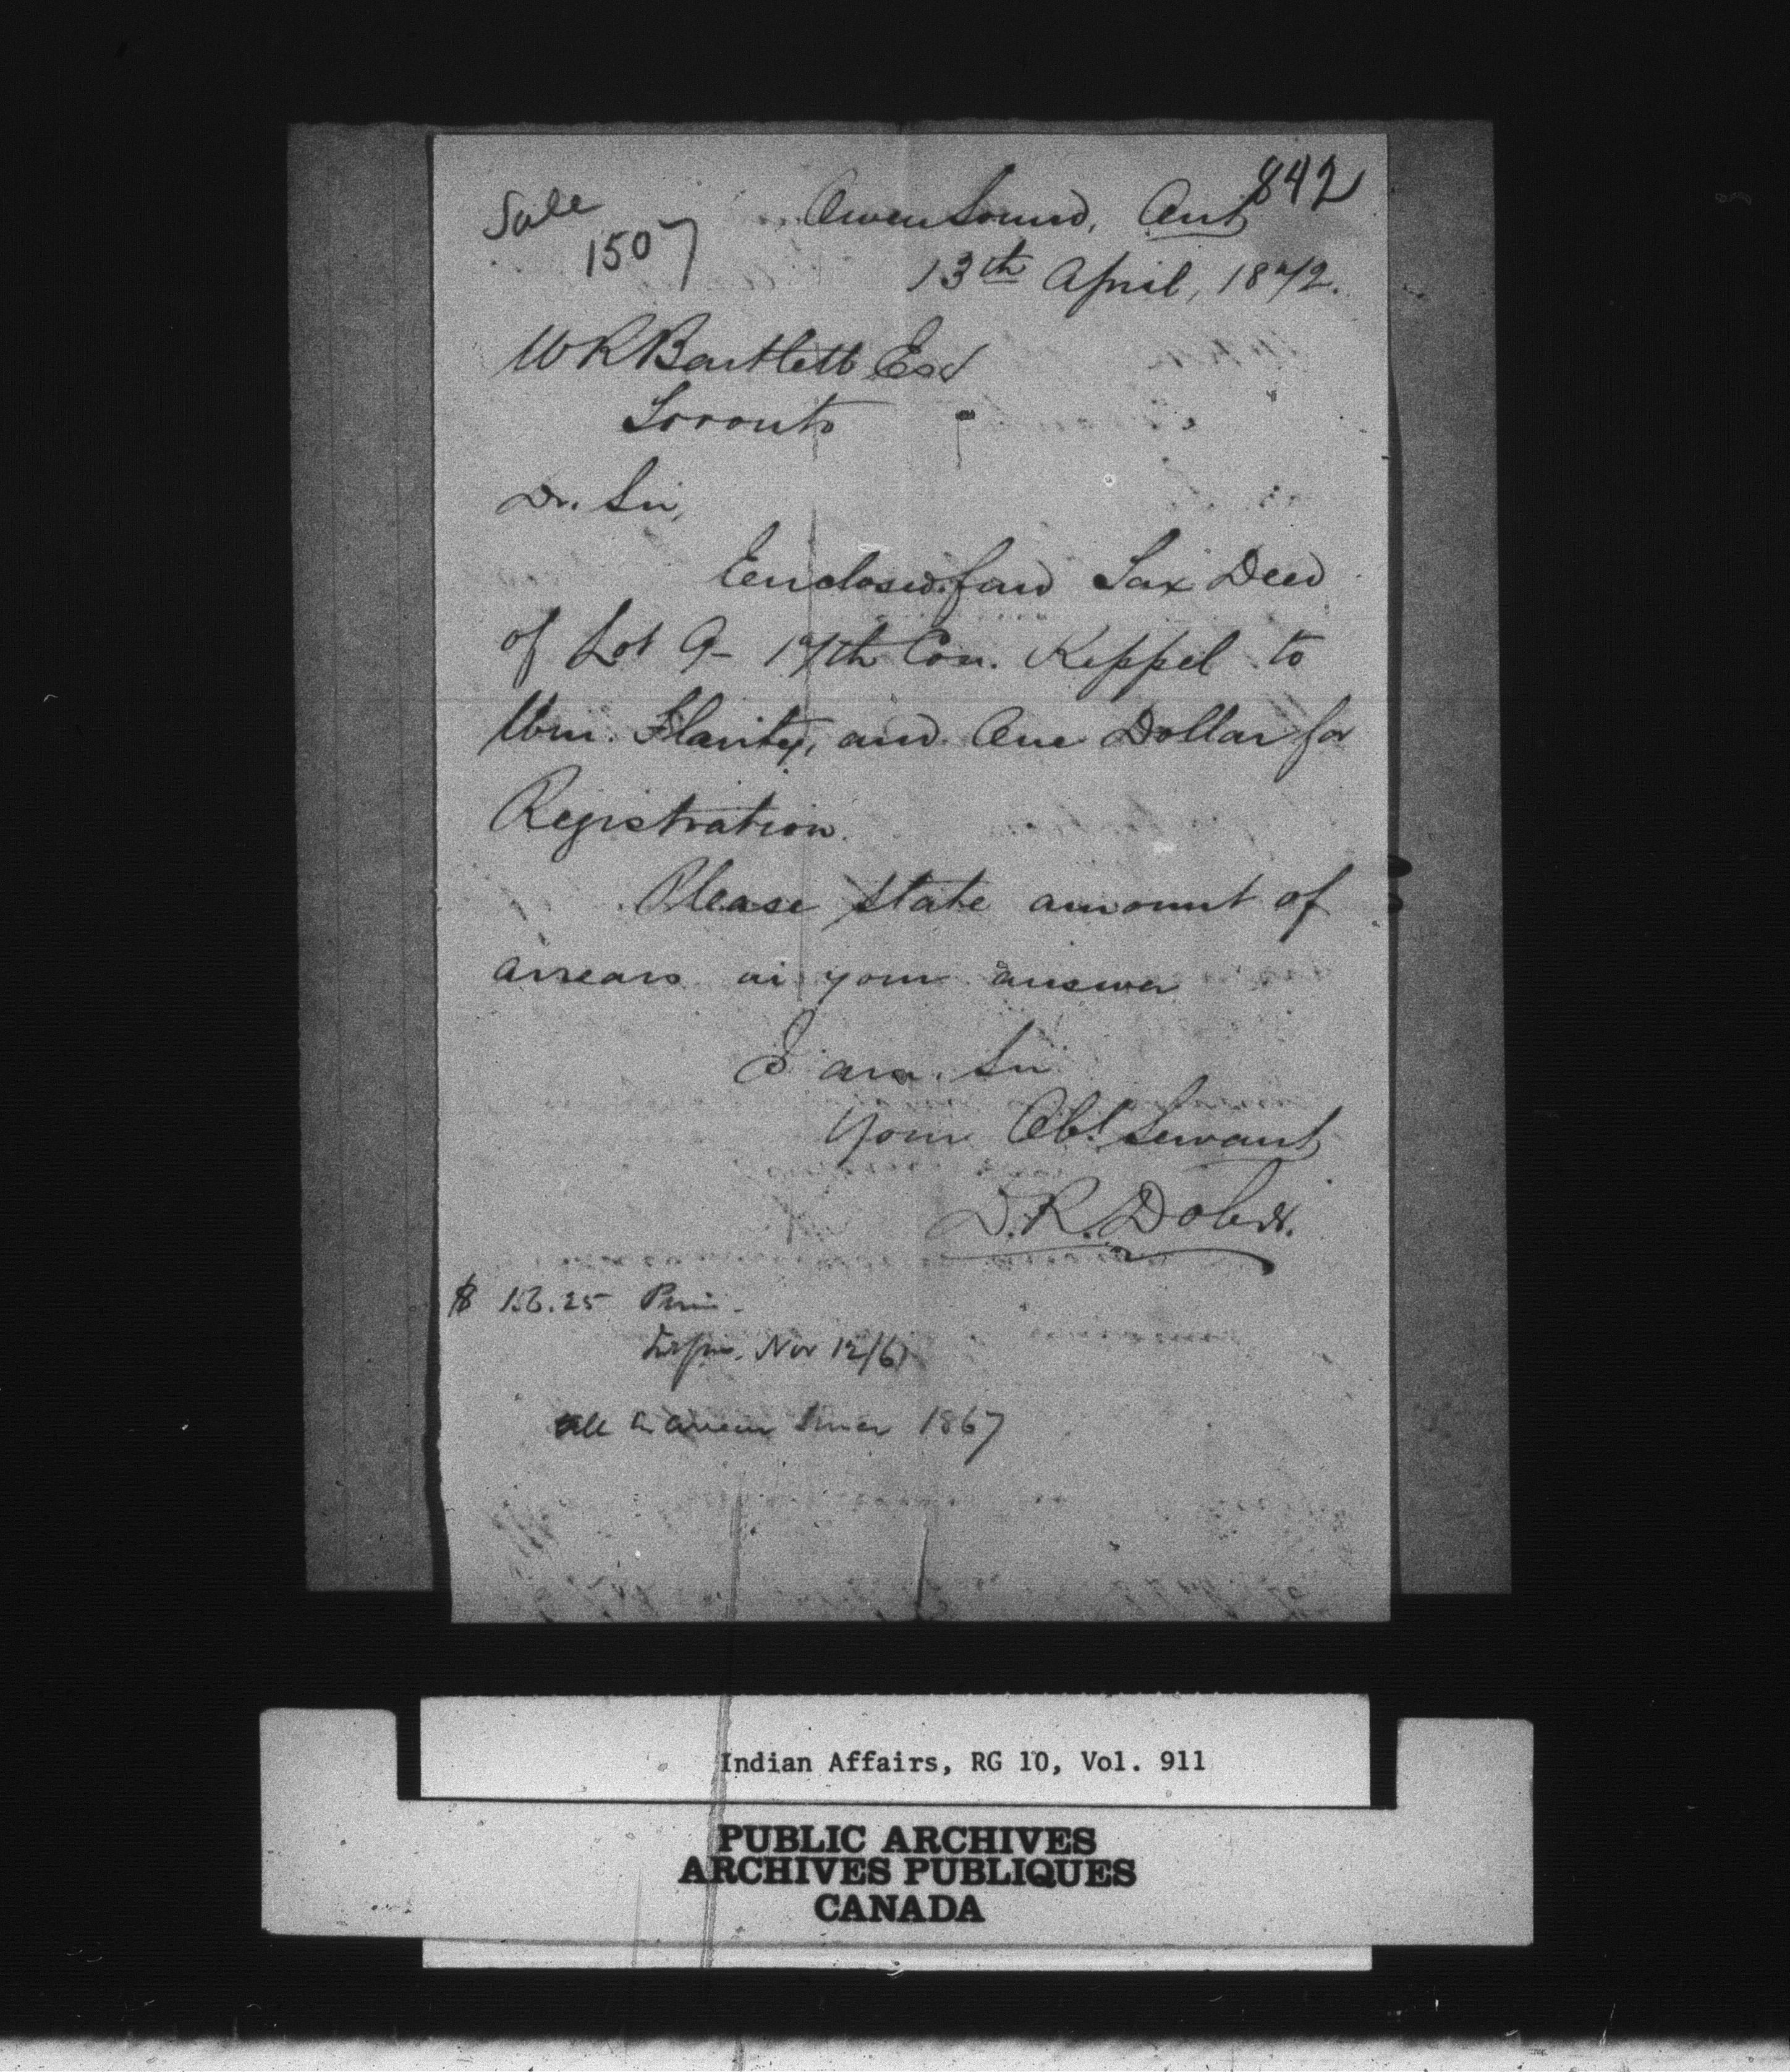 842
Sale
1507
Owen Sound, Ont
13th April, 1872.
W R Bartlett Esq
Toronto
Dr. Sir,
Enclosed find Tax Deed
of Lot 9 - 17th Con. Keppel to
Wm. Flarity, and One Dollar for
Registration.
Please state amount of
arrears in your answer
I am. Sir
Your Obt. Servant
D.R. Dobie.
$ 13.25 Prin.
Nov 12/61
all in arrear since 1867
Indian Affairs, RG 10, Vol. 911
PUBLIC ARCHIVES
ARCHIVES PUBLIQUES
CANADA